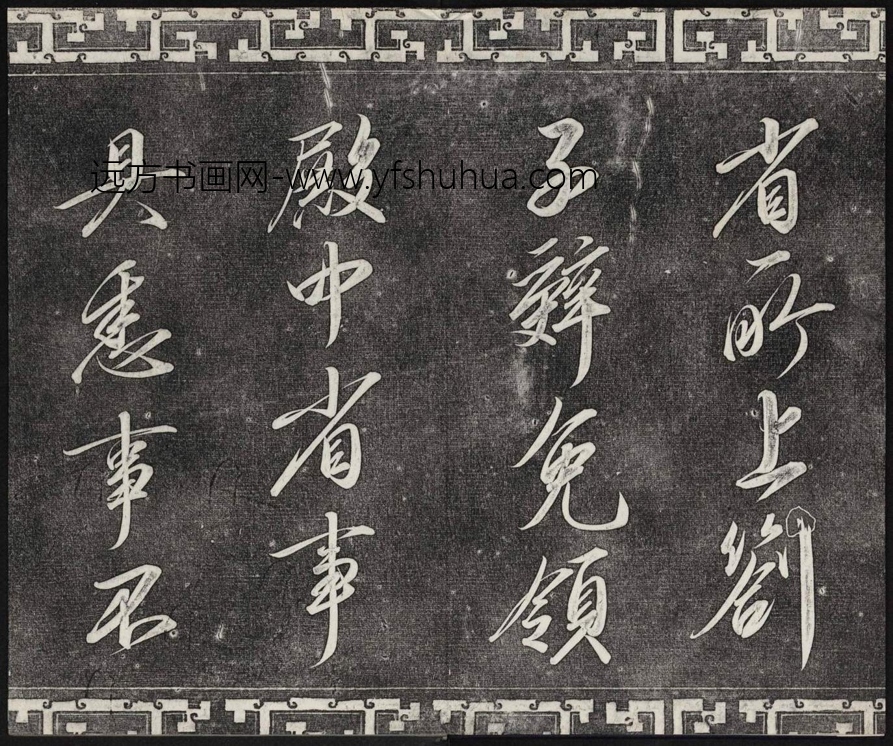 省所上劄
子辭免領
殿中省事
具悉事不
远方书画网-www.yfshuhua.com